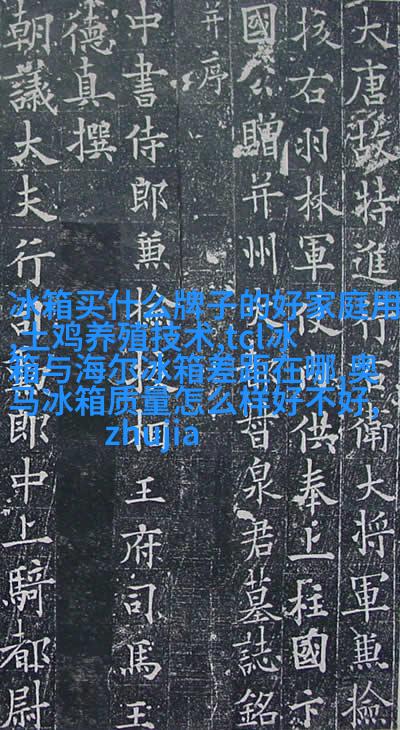 大唐故特進行右衛大將軍兼撿
挍右羽林軍仗內供奉上柱國卞
國公贈并州大都督泉君墓誌銘
并序
中書侍郎兼撿挍相王府司馬王
德真撰
朝議大夫行司勳郎中上騎都尉
冰箱买什么牌子的好家庭用
,土鸡养殖技术,tcl冰
箱与海尔冰箱差距在哪,奥
马冰箱质量怎么样好不好,
zhujia